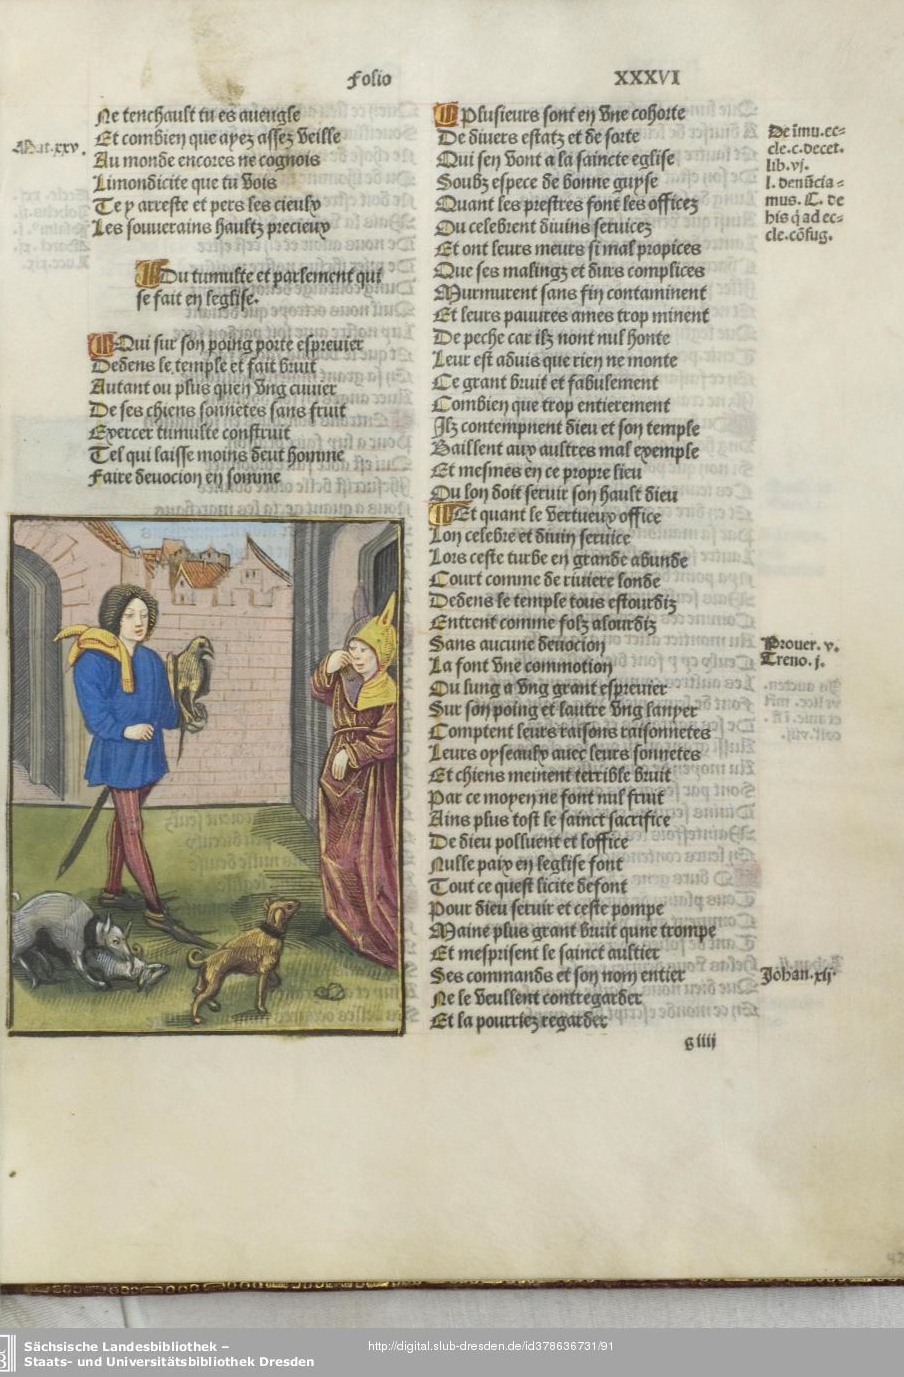 Folio XXXVI
Ne tenchault tu es aveugle
Et combien que ayez assez veille
Mat.xxv.
Au monde encores ne cognois
Limondicite que tu vois
Te y arreste et pers les cieulx
Les souverains haultz precieux
Du tumulte et parlement qui
se fait en leglise.
Qui sur son poing porte esprevier
Dedens le temple et fait bruit
Autant ou plus quen vng cuvier
De ses chiens sonnetes sans fruit
Exercer tumulte construit
Tel qui laisse moins deut homme
Faire devocion en somme
Plusieurs sont en vne cohorte
De divers estatz et de sorte
Qui sen vont a la saincte eglise
Soubz espece de bonne guyse
Quant les prestres font les officez
Ou celebrent divins servicez
Et ont leurs meurs si mal propices
Que ses malingz et durs complices
Murmurent sans fin contaminent
Et leurs pauvres ames trop minent
De peche car ilz nont nul honte
Leur est advis que rien ne monte
Ce grant bruit et fabulement
Combien que trop entierement
Ilz contempnent dieu et son temple
Baillent aux aultres mal exemple
Et mesmes en ce propre lieu
Ou lon doit servir son hault dieu
Et quant le vertueux office
Lon celebre et divin service
Lors ceste turbe en grande abunde
Court comme de riviere londe
Dedens le temple tous estourdiz
Entrent comme folz asourdiz
Sans aucune devocion
La font vne commotion
Ou lung a vng grant esprevier
Sur son poing et lautre vng lanyer
Comptent leurs raisons raisonnetes
Leurs oyseaulx avec leurs sonnetes
Et chiens meinent terrible bruit
Par ce moyen ne font nul fruit
Ains plus tost le sainct sacrifice
De dieu polluent et loffice
Nulle paix en leglise font
Tout ce quest licite defont
Pour dieu servir et ceste pompe
Maine plus grant bruit qune trompe
Et mesprisent le sainct aultier
Ses commands et son nom entier
Ne le veullent contregarder
Et la pourriez regarder
De īmu.ec=
cle.c.decet.
lib.vj.
l. denūcia=
mus. C. de
his q̄ ad ec=
cle.cōfug.
Prover. v.
Treno. j.
Johan.xij
g iiij
Sächsische Landesbibliothek –
Staats- und Universitätsbibliothek Dresden
http://digital.slub-dresden.de/id378636731/91